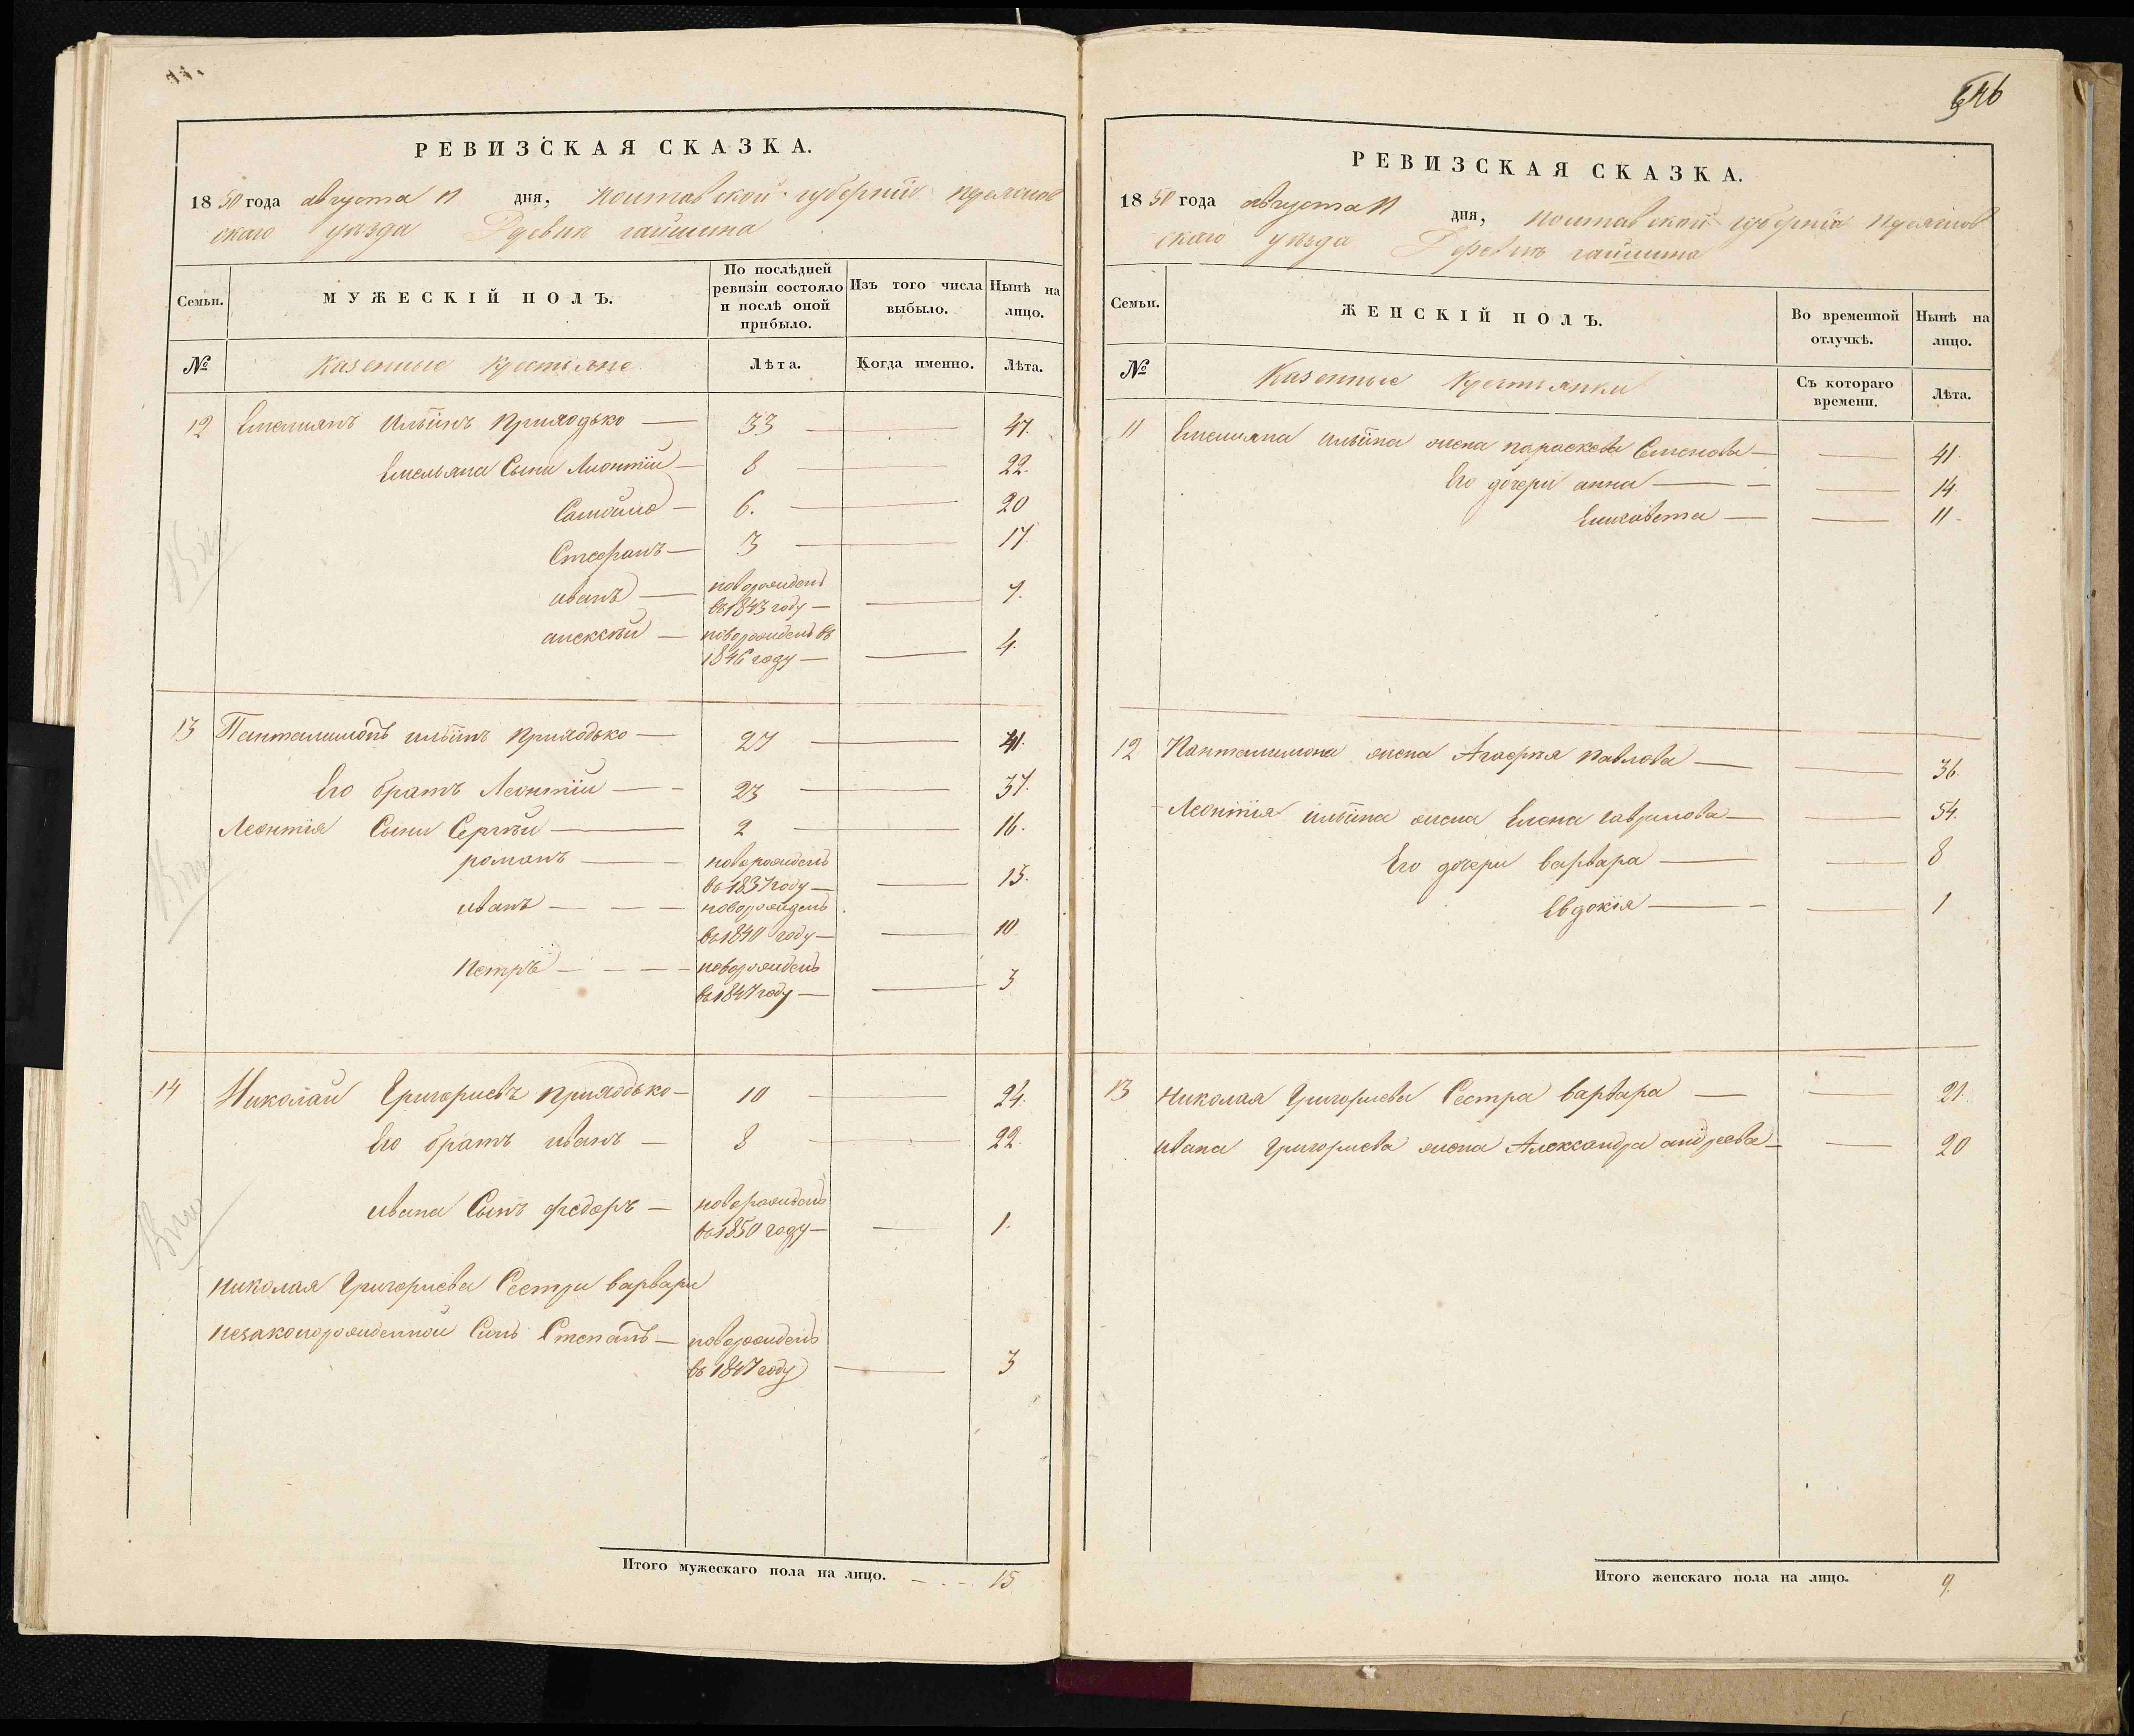 РЕВИЗСКАЯ СКАЗКА.
1850 года августа 11 дня, Полтавской губерніи
скаго уѣзда
Семьи.
МУЖЕСКІЙ ПОЛЪ.
По послѣдней ревизіи состояло и послѣ оной прибыло.
Изъ того числа выбыло.
Нынѣ на лицо.
№
Казенные Крестьяне
Лѣта.
Когда именно.
Лѣта.
12 Емелиянъ Ильинъ Приходько — 33 — 47.
Емельяна Сыни Леонтій — 8 — 22.
Самойло — 6. — 20
Стефанъ — 3 — 17.
иванъ — новорожденъ
въ 1843 году — 7.
алексѣй — новорожденъ въ
1846 году — 4.
13 Панталимонъ ильинъ Приходько — 27 — 41.
Его братъ Леонтій — 23 — 37.
Леонтія Сыни Сергѣй — 2 — 16.
романъ — новорожденъ
въ 1837 году — 13.
иванъ — новорожденъ
въ 1840 году — 10
Петръ — новорожденъ
въ 1847 году — 3
14 Николай Григориевъ Приходько — 10 — 24.
Его братъ иванъ — 8 — 22.
ивана Сынъ федоръ — новорожденъ
въ 1850 году — 1.
николая Григориева Сестри варвари
незаконорожденной Синъ Степанъ — новорожденъ
въ 1847 году — 3
Итого мужескаго пола на лицо. — 15
РЕВИЗСКАЯ СКАЗКА.
1850 года августа 11 дня, Полтавской губерніи
скаго уѣзда
Семьи.
ЖЕНСКІЙ ПОЛЪ.
Во временной отлучкѣ.
Нынѣ на лицо.
№
Казенные Крестьянки
Съ котораго времени.
Лѣта.
11 Емелияна ильина жена параскева Семенова — 41.
Его дочери анна — 14
Елисавета — 11
12 Панталимона жена Агафия Павлова — 36.
Леонтія ильина жена Елена гаврилова — 34.
Его дочери варвара — 8
Евдокія — 1
13 Николая Григориева Сестра варвара — 21.
ивана Григориева жена Александра андреева — 20
Итого женскаго пола на лицо. 9.